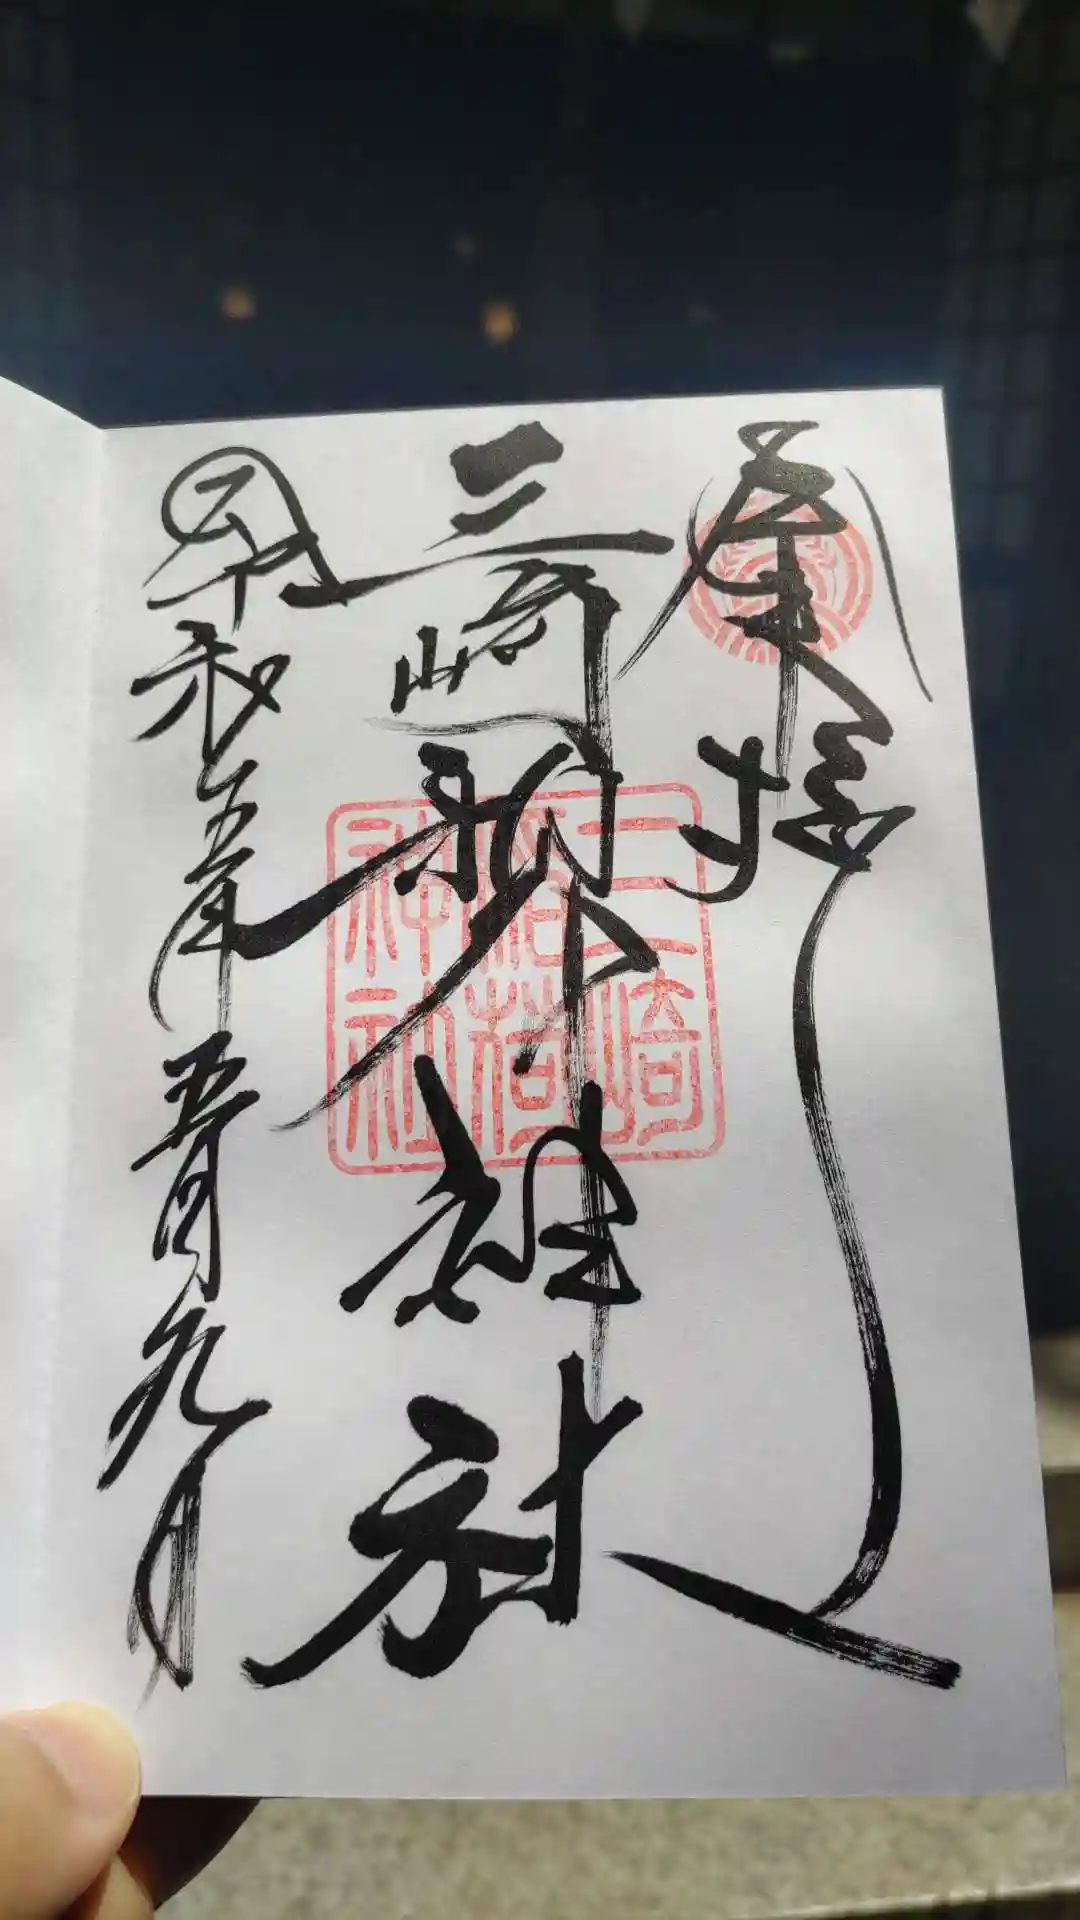 奉拝
三崎稲荷神社
三崎稲荷神社
令和五年五月九日